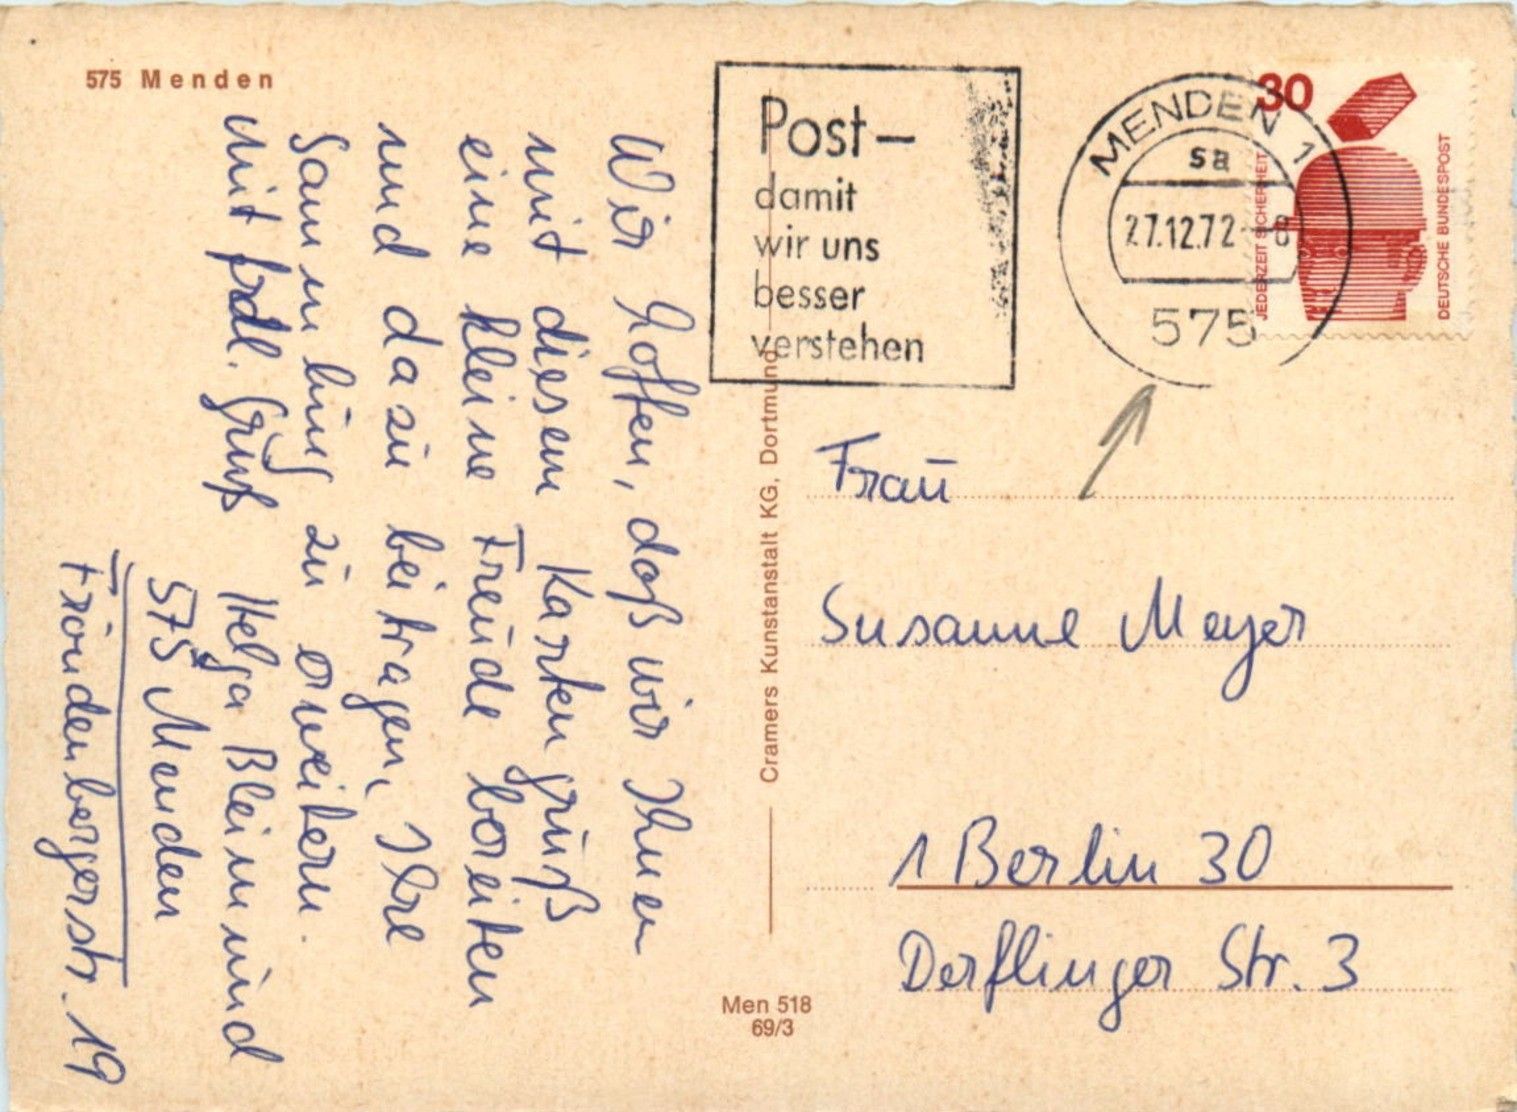 575 Menden
Wir hoffen, daß wir Ihnen
mit diesem Kartengruß
eine kleine Freude bereiten
und dazu beitragen, Ihre
Sammlung zu erweitern.
Mit frdl. Gruß
Helga Bleimund
575 Menden
Fröndenbergerstr. 19
Cramers Kunstanstalt KG, Dortmund
Men 518
69/3
Post-
damit
wir uns
besser
verstehen
MENDEN 1
sa
27.12.72-8
575
30
JEDERZEIT SICHERHEIT
DEUTSCHE BUNDESPOST
Frau
Susanne Meyer
1 Berlin 30
Derflinger Str. 3